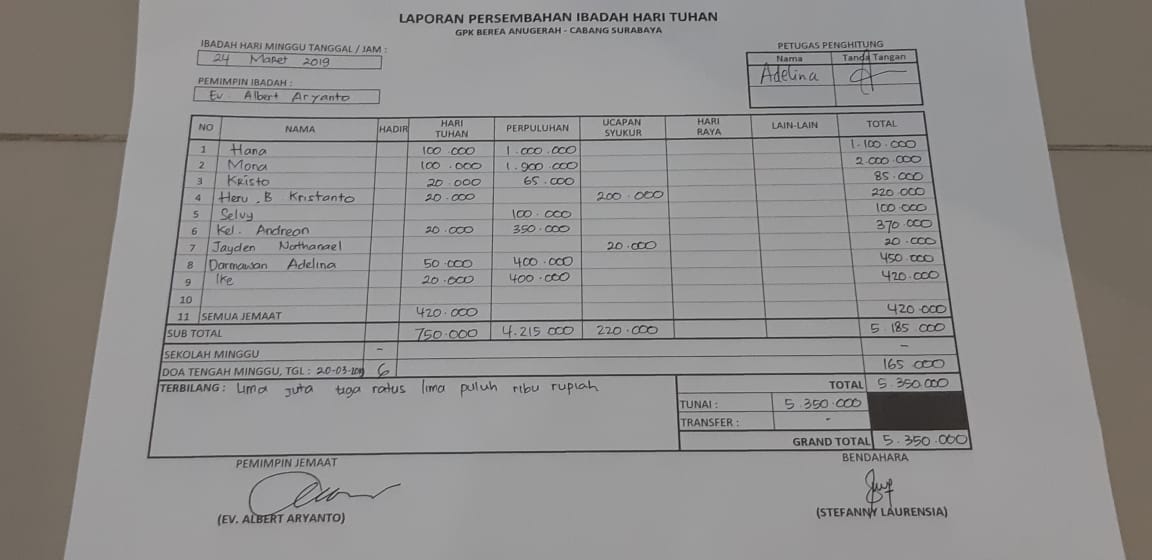 LAPORAN PERSEMBAHAN IBADAH HARI TUHAN
GPK BEREA ANUGERAH - CABANG SURABAYA
IBADAH HARI MINGGU TANGGAL / JAM :
24 Maret 2019
PEMIMPIN IBADAH :
Ev. Albert Aryanto
PETUGAS PENGHITUNG
Nama Tanda Tangan
Adelina
NO NAMA HADIR HARI TUHAN PERPULUHAN UCAPAN SYUKUR HARI RAYA LAIN-LAIN TOTAL
1 Hana 100.000 1.000.000 1.100.000
2 Mona 100.000 1.900.000 2.000.000
3 Kristo 20.000 65.000 85.000
4 Heru .B Kristanto 20.000 200.000 220.000
5 Selvy 100.000 100.000
6 Kel. Andreon 20.000 350.000 370.000
7 Jayden Nathanael 20.000 20.000
8 Darmawan Adelina 50.000 400.000 450.000
9 Ike 20.000 400.000 420.000
10
11 SEMUA JEMAAT 420.000 420.000
SUB TOTAL 750.000 4.215 000 220.000 5.185.000
SEKOLAH MINGGU - -
DOA TENGAH MINGGU, TGL : 20-03-2019 6 165 000
TERBILANG : Lima juta tiga ratus lima puluh ribu rupiah
TOTAL 5.350.000
TUNAI : 5.350.000
TRANSFER : -
GRAND TOTAL 5.350.000
PEMIMPIN JEMAAT
(EV. ALBERT ARYANTO)
BENDAHARA
(STEFANNY LAURENSIA)